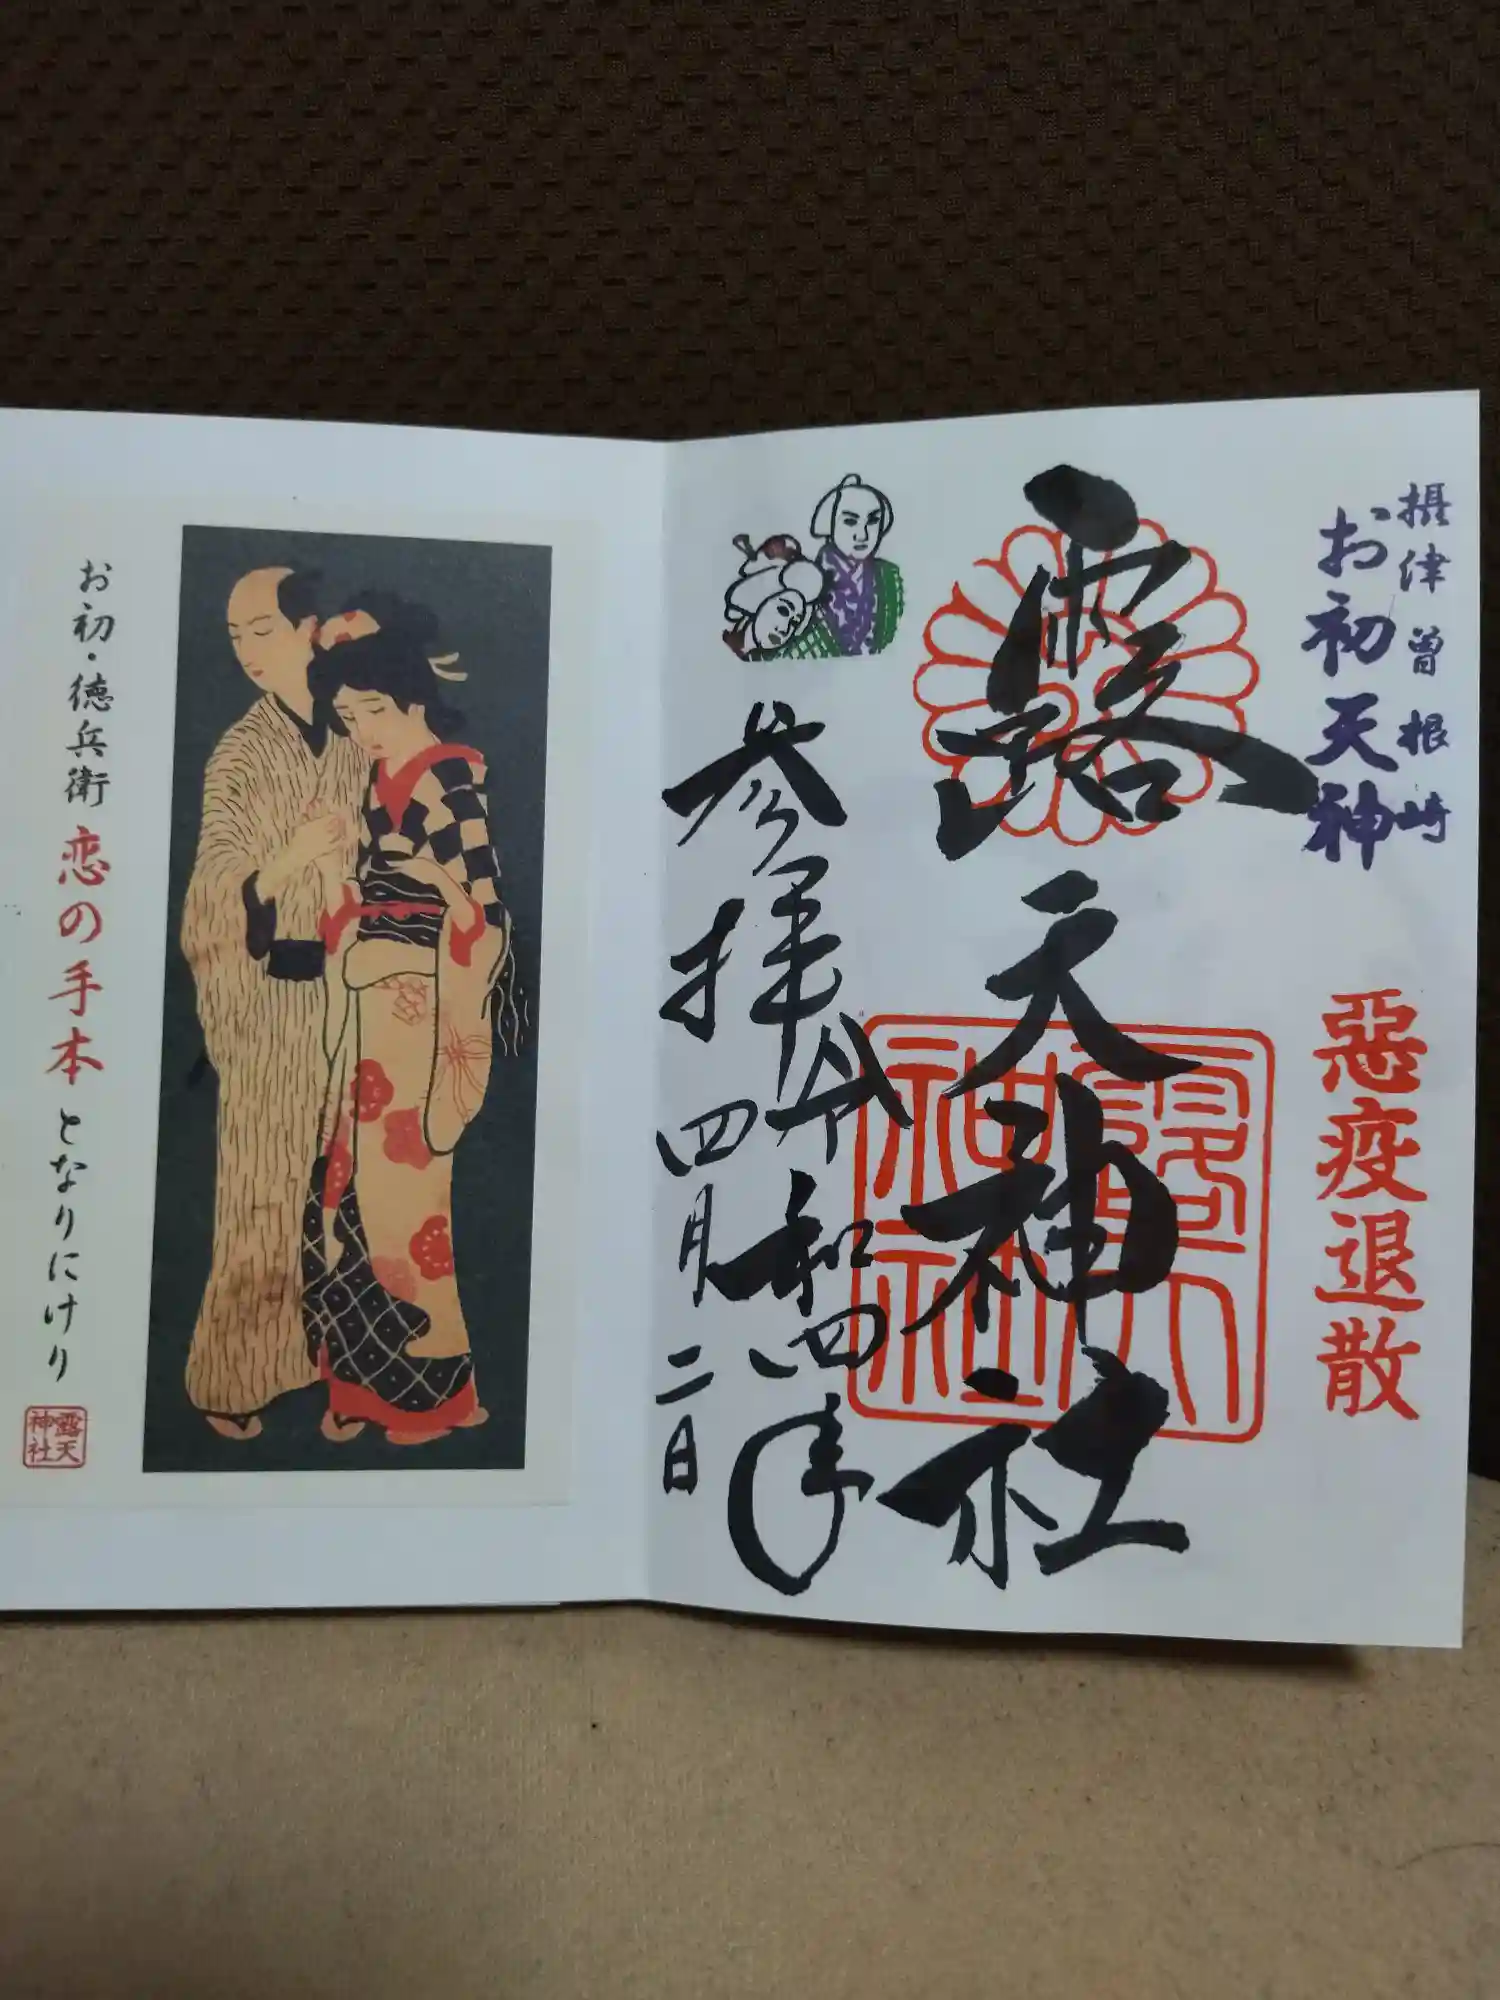 摂津曽根崎
お初天神
悪疫退散
露天神社
露天
神社
参拝
令和四年
四月二日
お初・徳兵衛 恋の手本 となりにけり
露天
神社